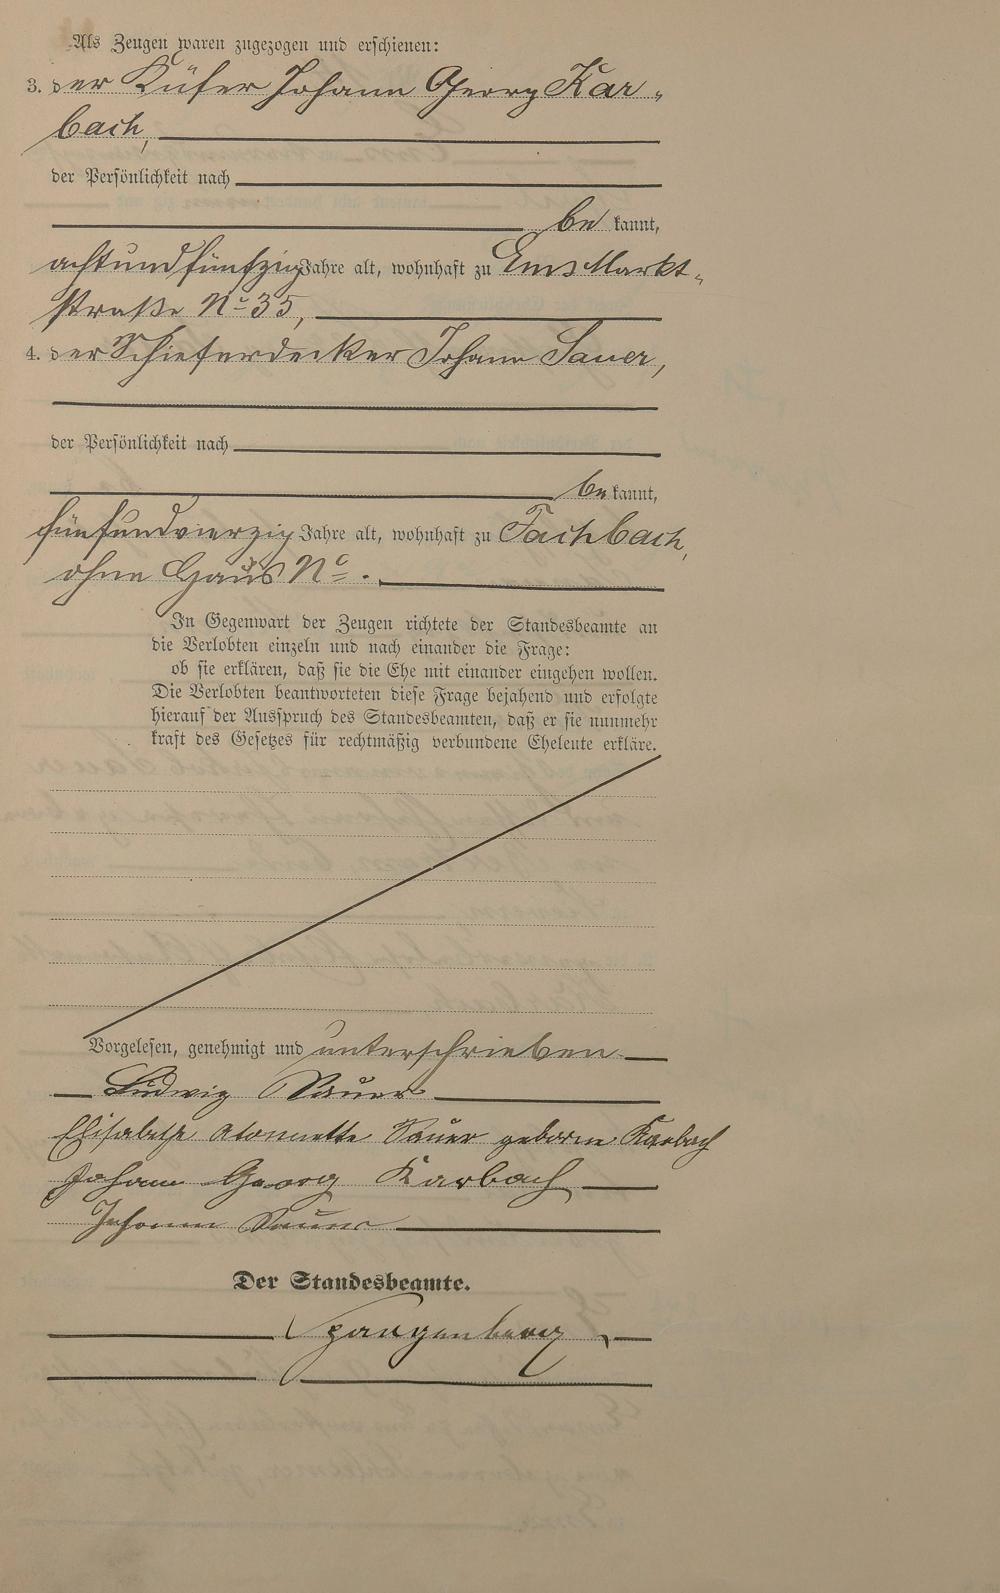 Als Zeugen waren zugezogen und erschienen:
3. der Küfer Johann Georg Kar-
bach,
der Persönlichkeit nach
be kannt,
achtundfünfzig Jahre alt, wohnhaft zu Ems Markt-
straße No 35,
4. der Schieferdecker Johann Sauer,
der Persönlichkeit nach
be kannt,
fünfundvierzig Jahre alt, wohnhaft zu Fachbach,
ohne Haus No.
In Gegenwart der Zeugen richtete der Standesbeamte an
die Verlobten einzeln und nach einander die Frage:
ob sie erklären, daß sie die Ehe mit einander eingehen wollen.
Die Verlobten beantworteten diese Frage bejahend und erfolgte
hierauf der Ausspruch des Standesbeamten, daß er sie nunmehr
kraft des Gesetzes für rechtmäßig verbundene Eheleute erkläre.
Vorgelesen, genehmigt und unterschrieben
Ludwig Sauer
Elisabetha Sauer geborne Karbach
Johann Georg Karbach
Johann Sauer
Der Standesbeamte.
Spangenberg